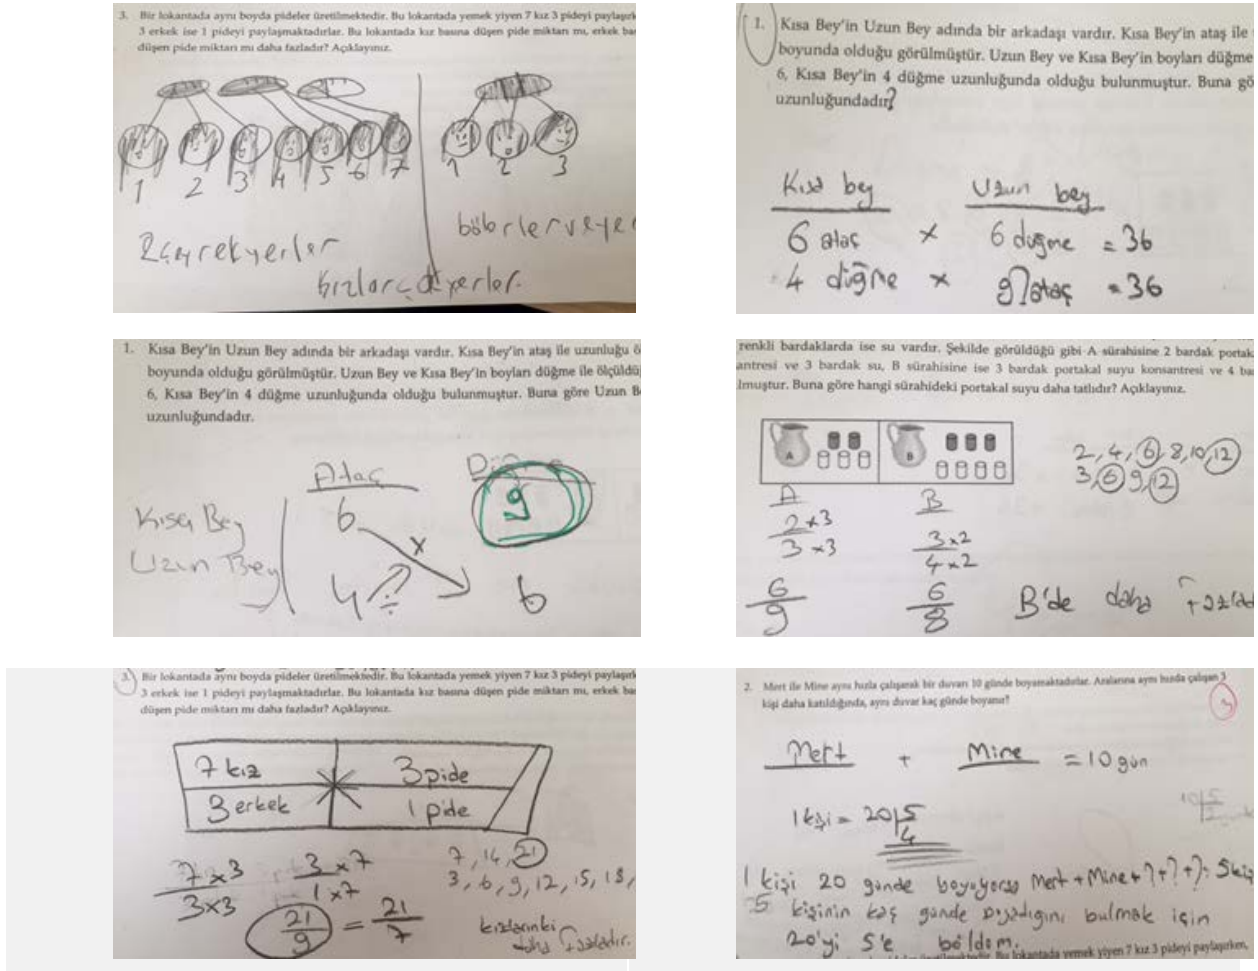 3. Bir lokantada aynı boyda pideler üretilmektedir. Bu lokantada yemek yiyen 7 kız 3 pideyi paylaşırk
3 erkek ise 1 pideyi paylaşmaktadırlar. Bu lokantada kız başına düşen pide miktarı mı, erkek ba
düşen pide miktarı mı daha fazladır? Açıklayınız.
1 2 3 4 5 6 7
1 2 3
2çeyrekyerler
kızlar
1. Kısa Bey'in Uzun Bey adında bir arkadaşı vardır. Kısa Bey'in ataş ile
boyunda olduğu görülmüştür. Uzun Bey ve Kısa Bey'in boyları düğme
6, Kısa Bey'in 4 düğme uzunluğunda olduğu bulunmuştur. Buna gö
uzunluğundadır?
Kısa bey Uzun bey
6 ataç x 6 düğme = 36
4 düğme x 9 ataç = 36
1. Kısa Bey'in Uzun Bey adında bir arkadaşı vardır. Kısa Bey'in ataş ile uzunluğu ö
boyunda olduğu görülmüştür. Uzun Bey ve Kısa Bey'in boyları düğme ile ölçüldü
6, Kısa Bey'in 4 düğme uzunluğunda olduğu bulunmuştur. Buna göre Uzun B
uzunluğundadır.
Ataç
Kısa Bey 6 9
x
Uzun Bey 4 ? 6
renkli bardaklarda ise su vardır. Şekilde görüldüğü gibi A sürahisine 2 bardak portak
antresi ve 3 bardak su, B sürahisine ise 3 bardak portakal suyu konsantresi ve 4 ba
lmuştur. Buna göre hangi sürahideki portakal suyu daha tatlıdır? Açıklayınız.
A B
2, 4, 6, 8, 10, 12
3, 6, 9, 12
A B
2x3 3x2
3x3 4x2
6 6
9 8
B'de daha fazlad
3. Bir lokantada aynı boyda pideler üretilmektedir. Bu lokantada yemek yiyen 7 kız 3 pideyi paylaşırk
3 erkek ise 1 pideyi paylaşmaktadırlar. Bu lokantada kız başına düşen pide miktarı mı, erkek ba
düşen pide miktarı mı daha fazladır? Açıklayınız.
7 kız 3 pide
3 erkek 1 pide
7x3 3x7
3x3 1x7
21 = 21
9 7
7, 14, 21
3, 6, 9, 12, 15, 18,
kızlarınki
daha fazladır.
2. Mert ile Mine aynı hızla çalışarak bir duvarı 10 günde boyamaktadırlar. Aralarına aynı hızda çalışan 3
kişi daha katıldığında, aynı duvar kaç günde boyanır?
3
Mert + Mine = 10 gün
1 kişi = 20 5
4
10 5
2
1 kişi 20 günde boyuyorsa Mert + Mine + ? + ? + ? = 5 kiş
5 kişinin kaç günde boyadığını bulmak için
20'yi 5'e böldüm.
yemek yiyen 7 kız 3 pideyi paylaşırken,